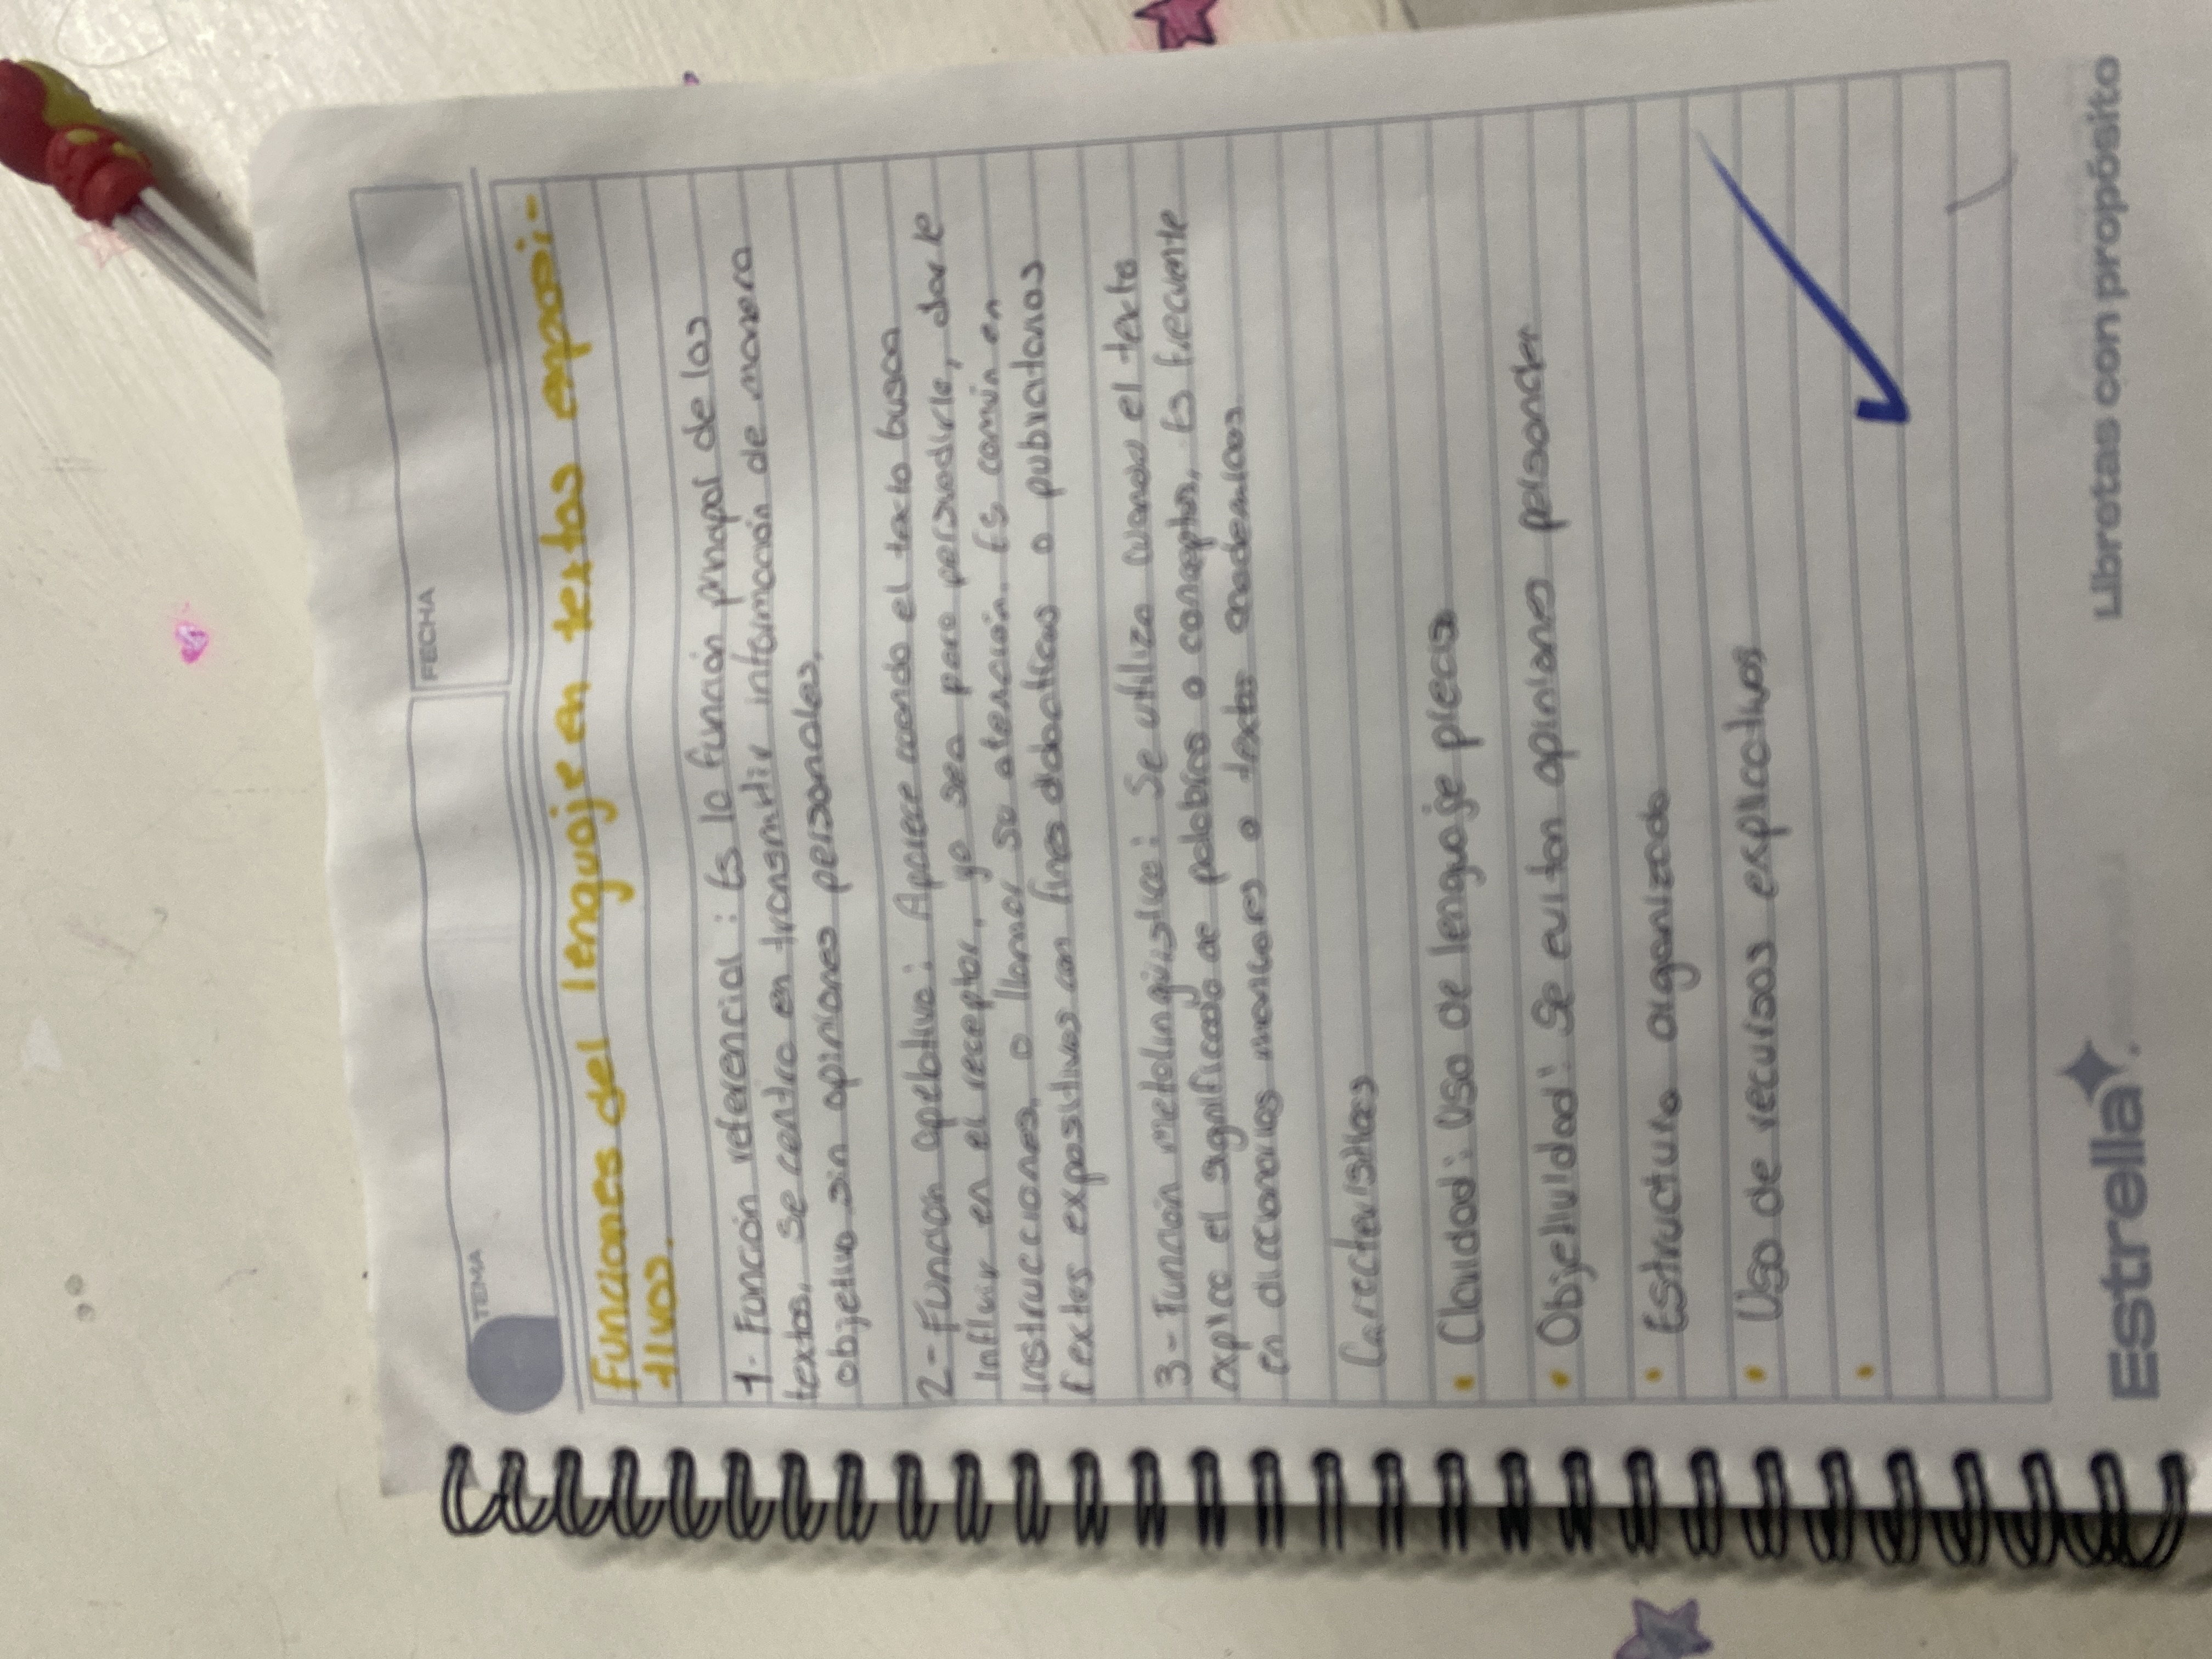 TEMA
FECHA
Funciones del lenguaje en textos exposi-
tivos.
1- Función referencial: Es la función principal de los
textos, se centra en transmitir información de manera
objetiva sin opiniones personales.
2- Función apelativa: Aparece cuando el texto busca
influir en el receptor, ya sea para persuadirle, darle
instrucciones, o llamar su atención. Es común en
textos expositivos con fines didacticos o
3- Función metalingüistica: Se utiliza cuando el texto
explica el significado de palabras o conceptos, Es frecuente
en diccionarios manuales o textos academicos
Carecteristicas
• Claridad: Uso de lenguaje preciso
• Objetividad: Se evitan opiniones
• Estructura organizada
• Uso de recursos explicativos
•
Estrella
Librotas con propósito